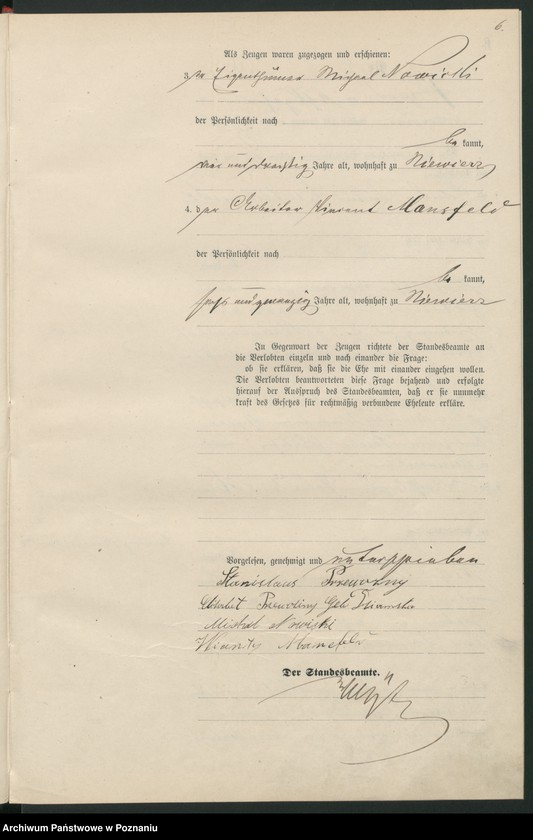 6.
Als Zeugen waren zugezogen und erschienen:
3. der Eigenthümer Michael Nowicki
der Persönlichkeit nach
be kannt,
vier und dreißig Jahre alt, wohnhaft zu Niewierz
4. der Arbeiter Vincent Mansfeld
der Persönlichkeit nach
be kannt,
sechs und zwanzig Jahre alt, wohnhaft zu Niewierz
In Gegenwart der Zeugen richtete der Standesbeamte an
die Verlobten einzeln und nach einander die Frage:
ob sie erklären, daß sie die Ehe mit einander eingehen wollen.
Die Verlobten beantworteten diese Frage bejahend und erfolgte
hierauf der Ausspruch des Standesbeamten, daß er sie nunmehr
kraft des Gesetzes für rechtmäßig verbundene Eheleute erkläre.
Vorgelesen, genehmigt und unterschrieben
Stanislaus
geb
Michal Nowicki
Mansfeld
Der Standesbeamte.
Archiwum Państwowe w Poznaniu